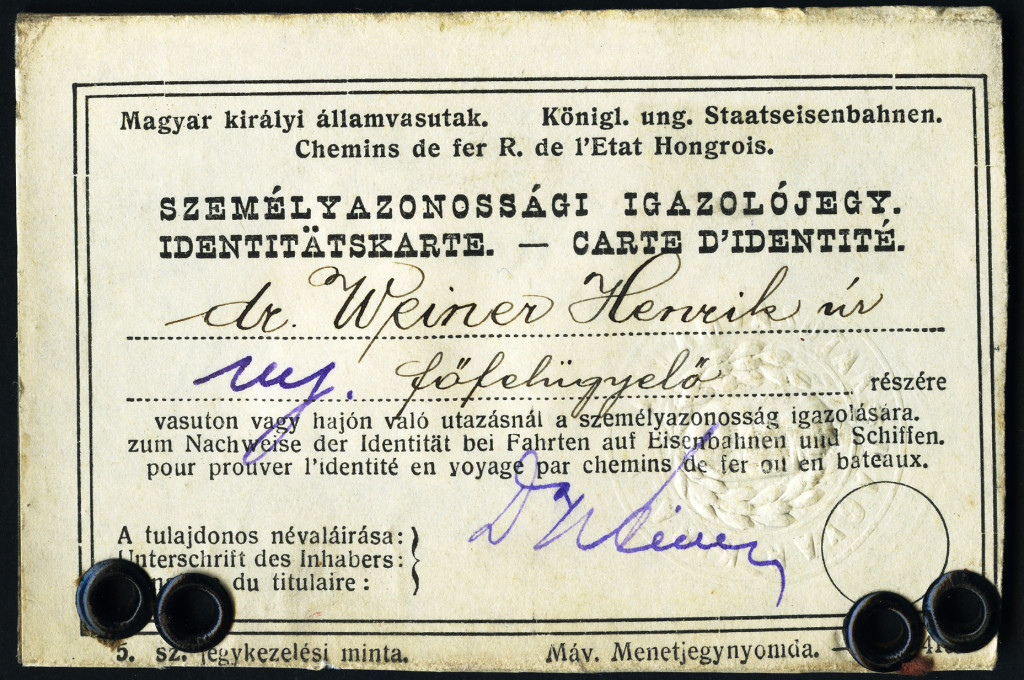 Magyar királyi államvasutak. Königl. ung. Staatseisenbahnen.
Chemins de fer R. de l'Etat Hongrois.
SZEMÉLYAZONOSSÁGI IGAZOLÓJEGY.
IDENTITÄTSKARTE. — CARTE D'IDENTITÉ.
dr. Weiner Henrik úr
ny. főfelügyelő részére
vasuton vagy hajón való utazásnál a személyazonosság igazolására.
zum Nachweise der Identität bei Fahrten auf Eisenbahnen und Schiffen.
pour prouver l'identité en voyage par chemins de fer ou en bateaux.
Dr Weiner
A tulajdonos névaláirása:
Unterschrift des Inhabers:
du titulaire:
5. sz. jegykezelési minta. Máv. Menetjegynyomda. —